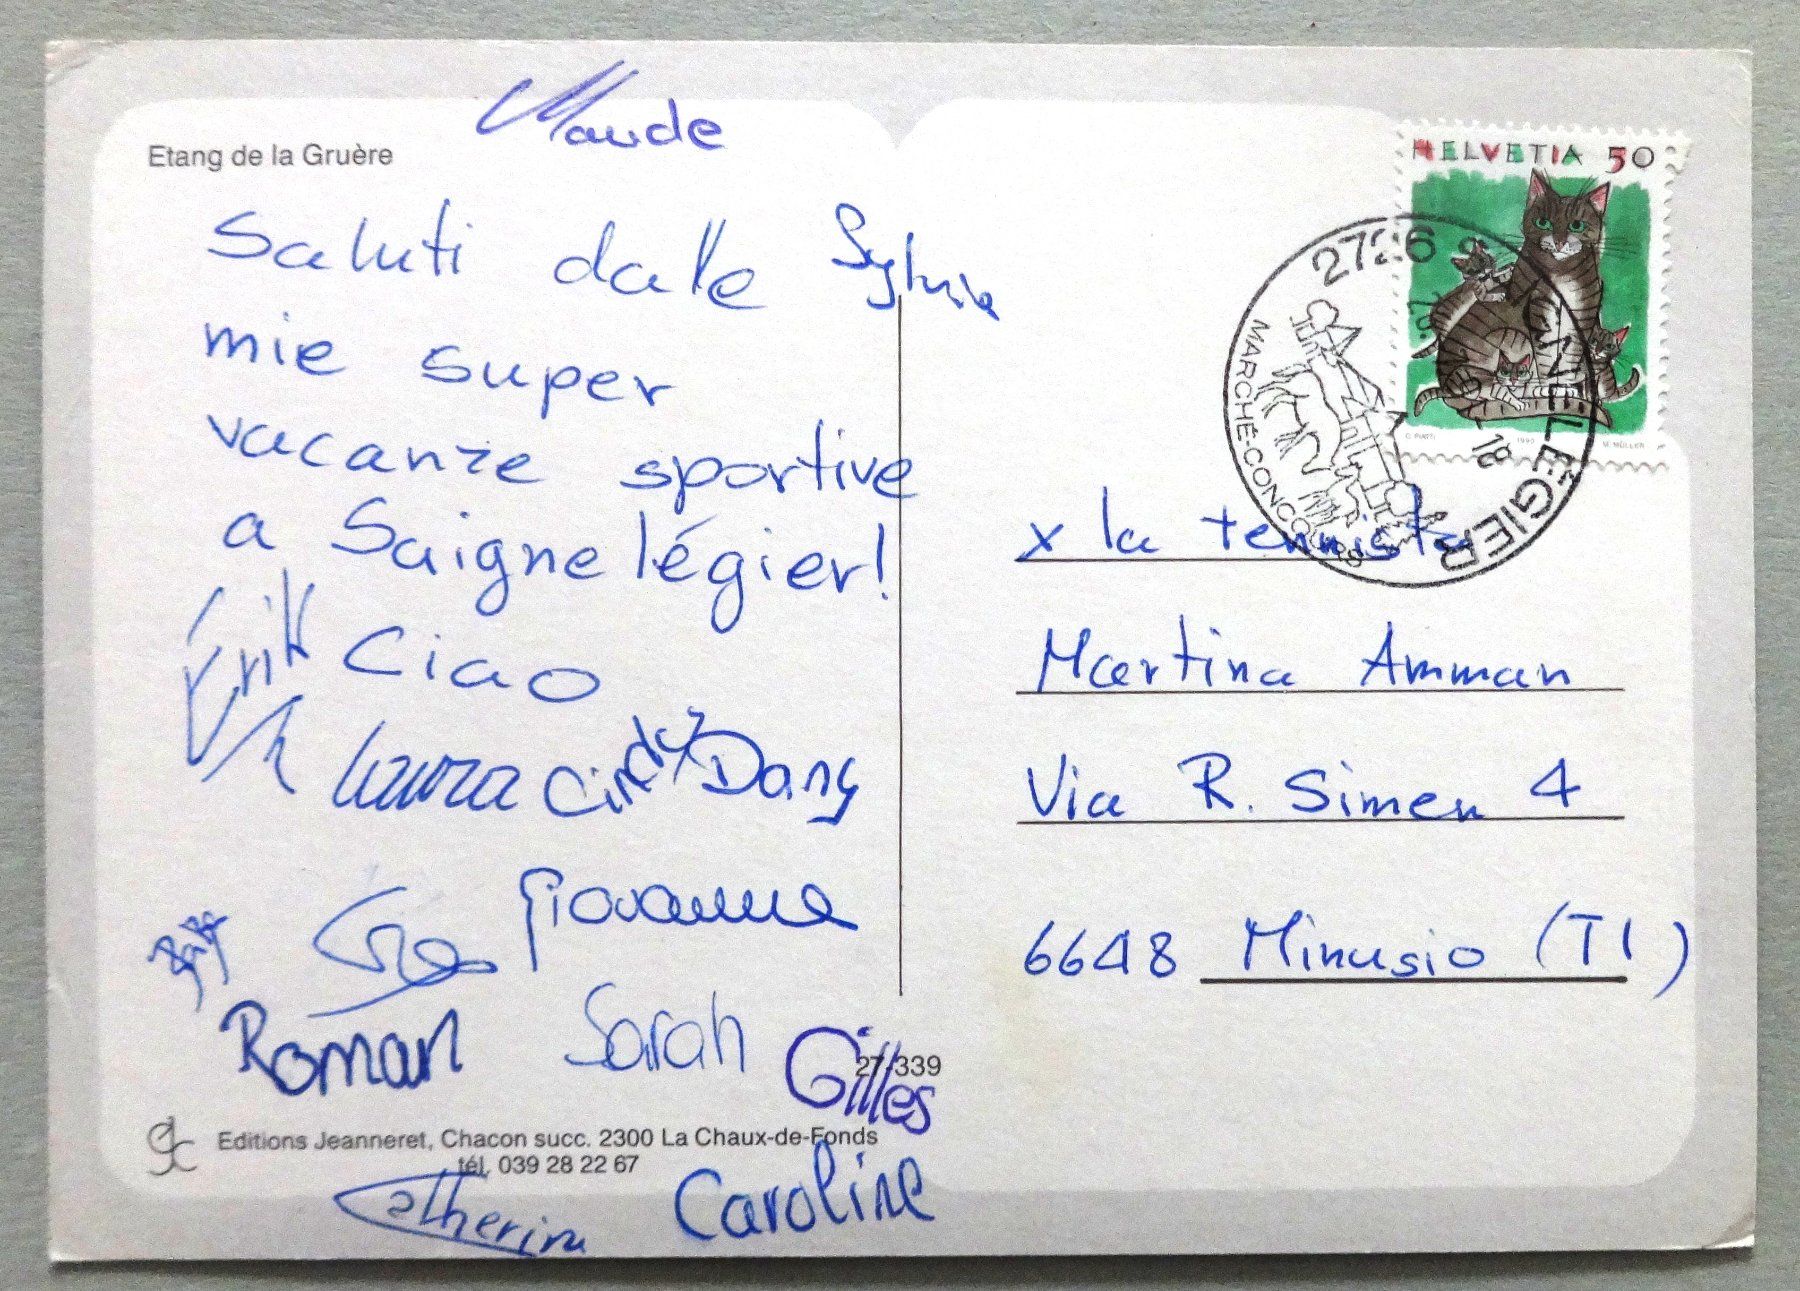 Maude
Etang de la Gruère
Saluti dalle Sylvia
mie super
vacanze sportive
a Saignelégier!
Erik Ciao
Laura Cindy Dany
Giovanna
Roman Sarah Gilles
27-339
Editions Jeanneret, Chacon succ. 2300 La Chaux-de-Fonds
tél. 039 28 22 67
Catherine Caroline
HELVETIA 50
1990 M. MÜLLER
2726 SAIGNELÉGIER
MARCHÉ-CONCOURS
18
x la tennista
Martina Amman
Via R. Simen 4
6648 Minusio (TI)